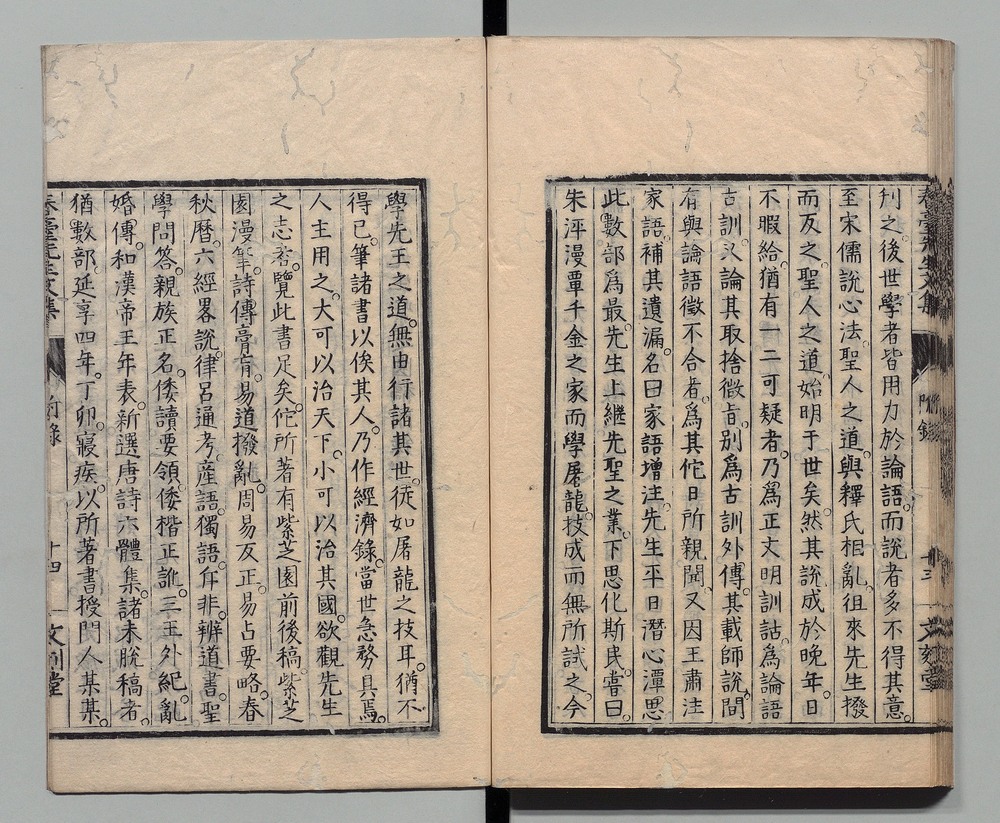 春臺先生文集 附錄 十三 文刻堂
刊之後世學者皆用力於論語而說者多不得其意
至宋儒說心法聖人之道與釋氏相亂徂來先生撥
而反之聖人之道始明于世矣然其說成於晚年日
不暇給猶有一二可疑者乃爲正文明訓詁爲論語
古訓以論其取捨微旨別爲古訓外傳其載師說間
有與論語徵不合者爲其佗日所親聞又因王肅注
家語補其遺漏名曰家語增注先生平日潛心潭思
此數部爲最先生上繼先聖之業下思化斯民嘗曰
朱泙漫單千金之家而學屠龍技成而無所試之今
學先王之道無由行諸其世徒如屠龍之技耳猶不
得已筆諸書以俟其人乃作經濟錄當世急務具焉
人主用之大可以治天下小可以治其國欲觀先生
之志者覽此書足矣佗所著有紫芝園前後稿紫芝
園漫筆詩傳膏肓易道撥亂周易反正易占要略春
秋曆六經畧說律呂通考產語獨語斥非辨道書聖
學問答親族正名倭讀要領倭楷正訛三王外紀亂
婚傳和漢帝王年表新選唐詩六體集諸未脫稿者
猶數部延享四年丁卯寢疾以所著書授門人某某
春臺先生文集 附錄 十四 文刻堂